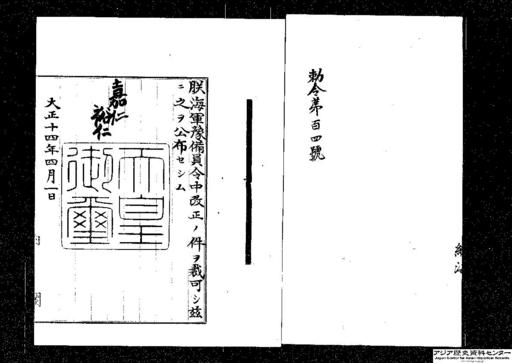 勅令第百四號
朕海軍豫備員令中改正ノ件ヲ裁可シ茲
ニ之ヲ公布セシム
嘉仁
裕仁
天皇
御璽
大正十四年四月一日
アジア歴史資料センター
Japan Center for Asian Historical Records